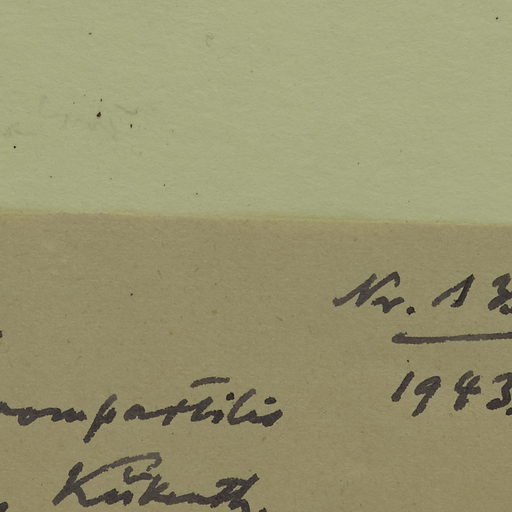 Nr. 13
1943
compartilis
Kükenth.